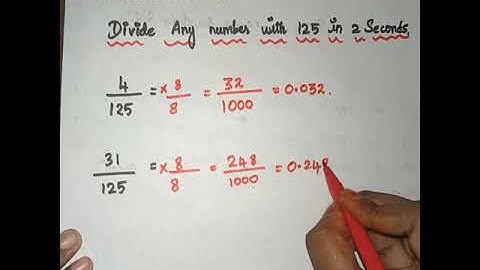 Divide Any number with 125 in 2 Seconds,
4/125 = × 8/8 = 32/1000 = 0.032.
31/125 = × 8/8 = 248/1000 = 0.248